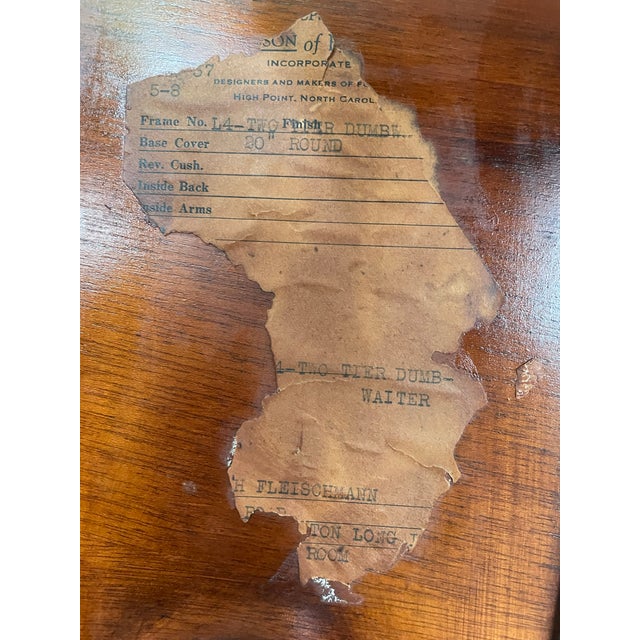 SON of
INCORPORATE
DESIGNERS AND MAKERS OF F
HIGH POINT, NORTH CAROL
5-8
Frame No. L4-TWO Finish TIER DUMB
Base Cover 20" ROUND
Rev. Cush.
Inside Back
nside Arms
4-TWO TIER DUMB-
WAITER
H FLEISCHMANN
TON LONG I
ROOM